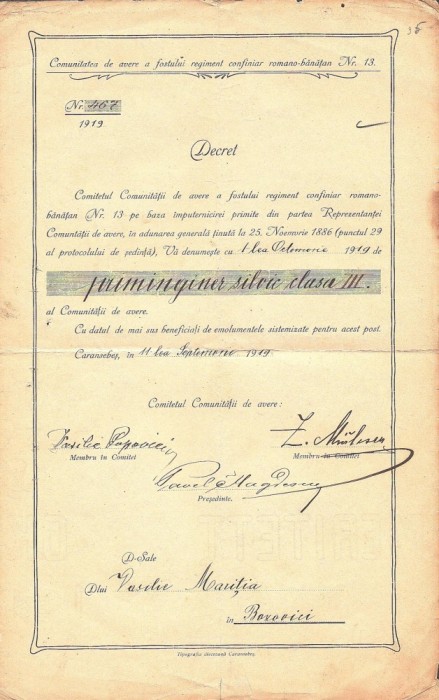 36
Comunitatea de avere a fostului regiment confiniar romano-bănățan Nr. 13.
Nr. 467
1919
Decret
Comitetul Comunității de avere a fostului regiment confiniar romano-
bănățan Nr. 13 pe baza împuternicirei primite din partea Reprezentanței
Comuntății de avere, în adunarea generală ținută la 25. Noemvrie 1886 (punctul 29
al protocolului de ședință), Vă denumește cu 1-lea Octomvrie 1919 de
priminginer silvic clasa III.
al Comunității de avere.
Cu datul de mai sus beneficiați de emolumentele sistemizate pentru acest post.
Caransebeș, în 11 lea Septemvrie 1919.
Comitetul Comunității de avere:
Vasilie Popovici
Z.
Membru în Comitet
Membru în Comitet
Pavel Magdescu
Președinte.
D-Sale
Dlui Vasiliu Mariția
în Bozovici
Tipografia diecezană Caransebeș.